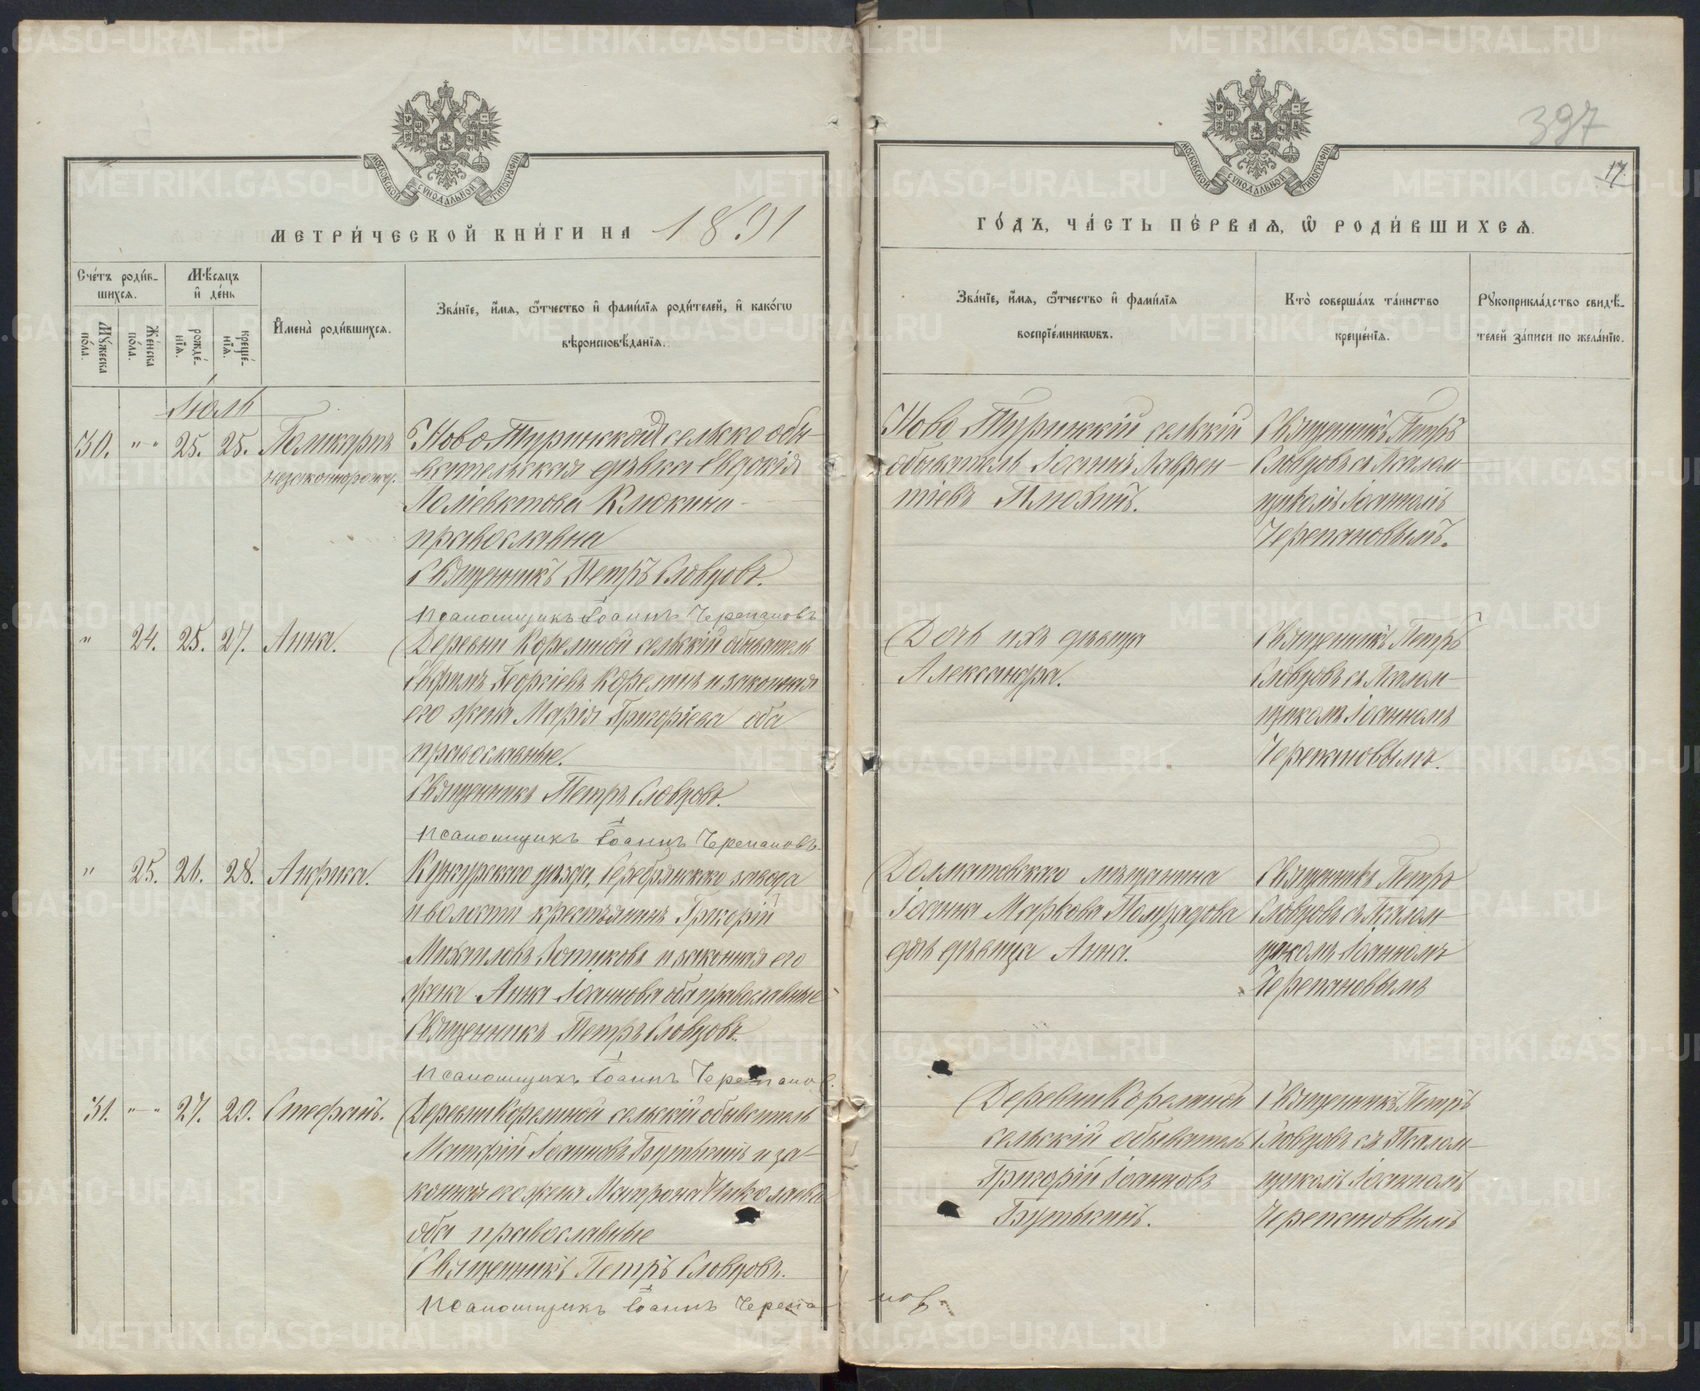 397
17.
МОСКОВСКОЙ СѴНОДАЛЬНОЙ ТИПОГРАФІИ
МОСКОВСКОЙ СѴНОДАЛЬНОЙ ТИПОГРАФІИ
МЕТРИ́ЧЕСКОЙ КНИ́ГИ НА 1891
ГО́ДЪ, ЧА́СТЬ ПЕ́РВАѦ, Ѡ РОДИ́ВШИХСѦ.
Сче́тъ роди́в-
шихсѧ.
Му́жеска
по́ла.
Же́нска
по́ла.
Мѣ́сѧцъ
и҆ де́нь
рожде́-
нїѧ.
креще́-
нїѧ.
И҆мена̀ роди́вшихсѧ.
Зва́нїе, и҆́мѧ, ѻ҆́тчество и҆ фами́лїѧ роди́телей, и҆ како́гѡ
вѣроисповѣ́данїѧ.
Зва́нїе, и҆́мѧ, ѻ҆́тчество и҆ фами́лїѧ
воспрїе́мникѡвъ.
Кто̀ соверша́лъ та́инство
креще́нїѧ.
Рꙋкоприкла́дство свидѣ́-
телей за́писи по жела́нїю.
Іюль
30. " " 25. 25. Поликарпъ
незаконнорожд.
Ново Туринской сельско обы-
вательская дѣвка Евдокія
Поліевктова Клюкина
православна
Священникъ Петръ Словцовъ.
Псаломщикъ Іоаннъ Черепановъ
Ново Туринскій сельскій
обыватель Іоаннъ Лаврен-
тіевъ Плюхинъ.
Священникъ Петръ
Словцовъ съ Псалом-
щикомъ Іоанномъ
Черепановымъ.
" 24. 25. 27. Анна.
Деревни Корелиной сельскій обыватель
Ефримъ Георгіевъ Корелинъ и законная
его жена Марія Григоріева оба
православные.
Священникъ Петръ Словцовъ.
Псаломщикъ Іоаннъ Черепановъ
Дочь ихъ дѣвица
Александра.
Священникъ Петръ
Словцовъ съ Псалом-
щикомъ Іоанномъ
Черепановымъ.
" 25. 26. 28. Анфиса.
Кунгурскаго уѣзда, Серебрянскаго завода
и волости крестьянинъ Григорій
Михаиловъ Зотиковъ и законная его
жена Анна Іоаннова оба православные
Священникъ Петръ Словцовъ.
Псаломщикъ Іоаннъ Черепановъ.
Долматовскаго мѣщанина
Іоанна Маркова
дочь дѣвица Анна.
Священникъ Петръ
Словцовъ съ Псалом-
щикомъ Іоанномъ
Черепановымъ
31. " " 27. 29. Стефанъ.
Деревни Корелиной сельскій обыватель
Матфій Іоанновъ Бутыкинъ и за-
конная его жена Матрона Николаева
оба православные
Священникъ Петръ Словцовъ.
Псаломщикъ Іоаннъ Черепа-
новъ.
Деревни Корелиной
сельскій обыватель
Григорій Іоанновъ
Бутыкинъ.
Священникъ Петръ
Словцовъ съ Псалом-
щикомъ Іоанномъ
Черепановымъ
METRIKI.GASO-URAL.RU